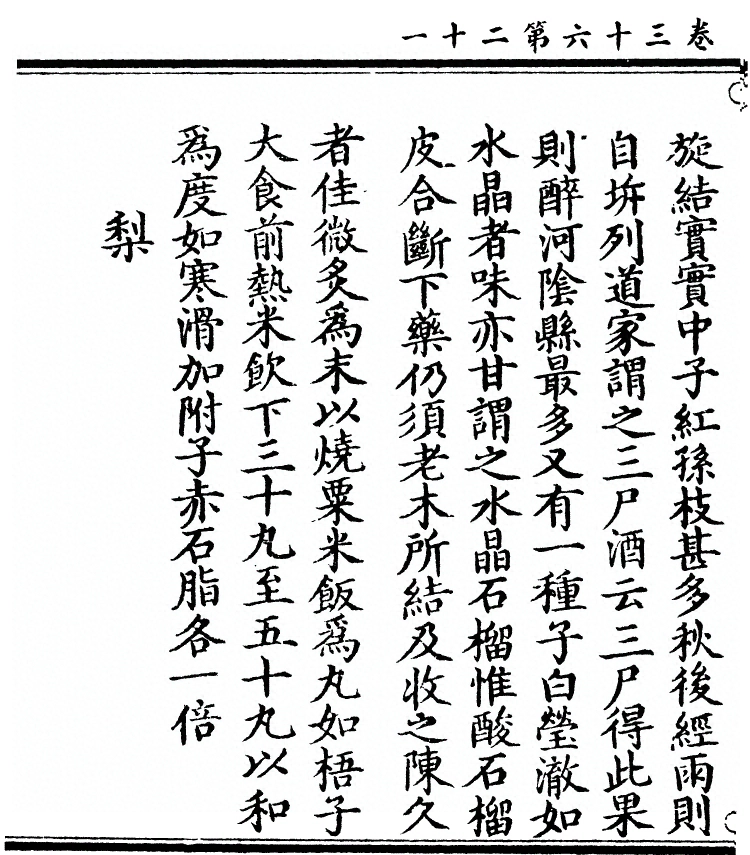 卷三十六第二十一
旋結實實中子紅孫枝甚多秋後經雨則
自坼列道家謂之三尸酒云三尸得此果
則醉河陰縣最多又有一種子白瑩澈如
水晶者味亦甘謂之水晶石榴惟酸石榴
皮合斷下藥仍須老木所結及收之陳久
者佳微炙爲末以燒粟米飯爲丸如梧子
大食前熱米飲下三十丸至五十丸以和
爲度如寒滑加附子赤石脂各一倍
梨